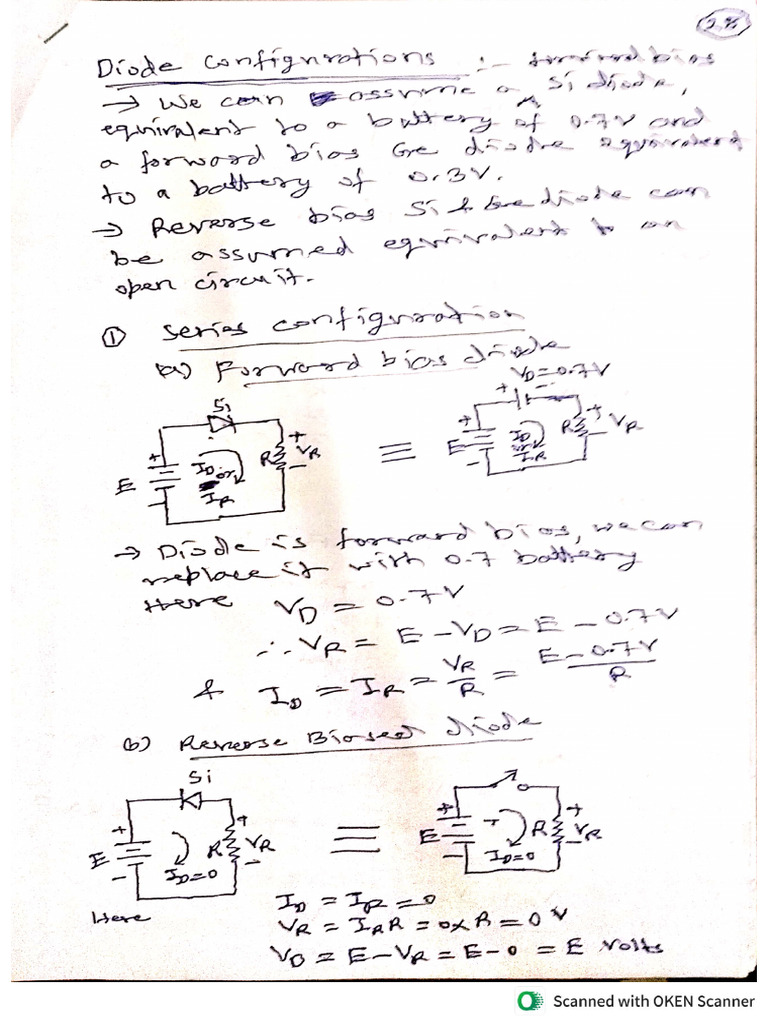 2.8
Diode Configurations :- forward bias
→ We can assume a Si diode,
equivalent to a battery of 0.7V and
a forward bias Ge diode equivalent
to a battery of 0.3V.
→ Reverse bias Si & Ge diode can
be assumed equivalent to an
open circuit.
① Series configuration
(a) Forward bias diode
VD = 0.7V
Si
+ E - ID or IR R + VR - ≡ + E - ID or IR R + VR -
→ Diode is forward bias, we can
replace it with 0.7 battery
Here VD = 0.7V
∴ VR = E - VD = E - 0.7V
& ID = IR = VR/R = E - 0.7V/R
(b) Reverse Biased diode
Si
+ E - ID=0 R + VR - ≡ + E - ID=0 R + VR -
Here
ID = IR = 0
VR = IRR = 0xR = 0V
VD = E - VR = E - 0 = E Volts
Scanned with OKEN Scanner